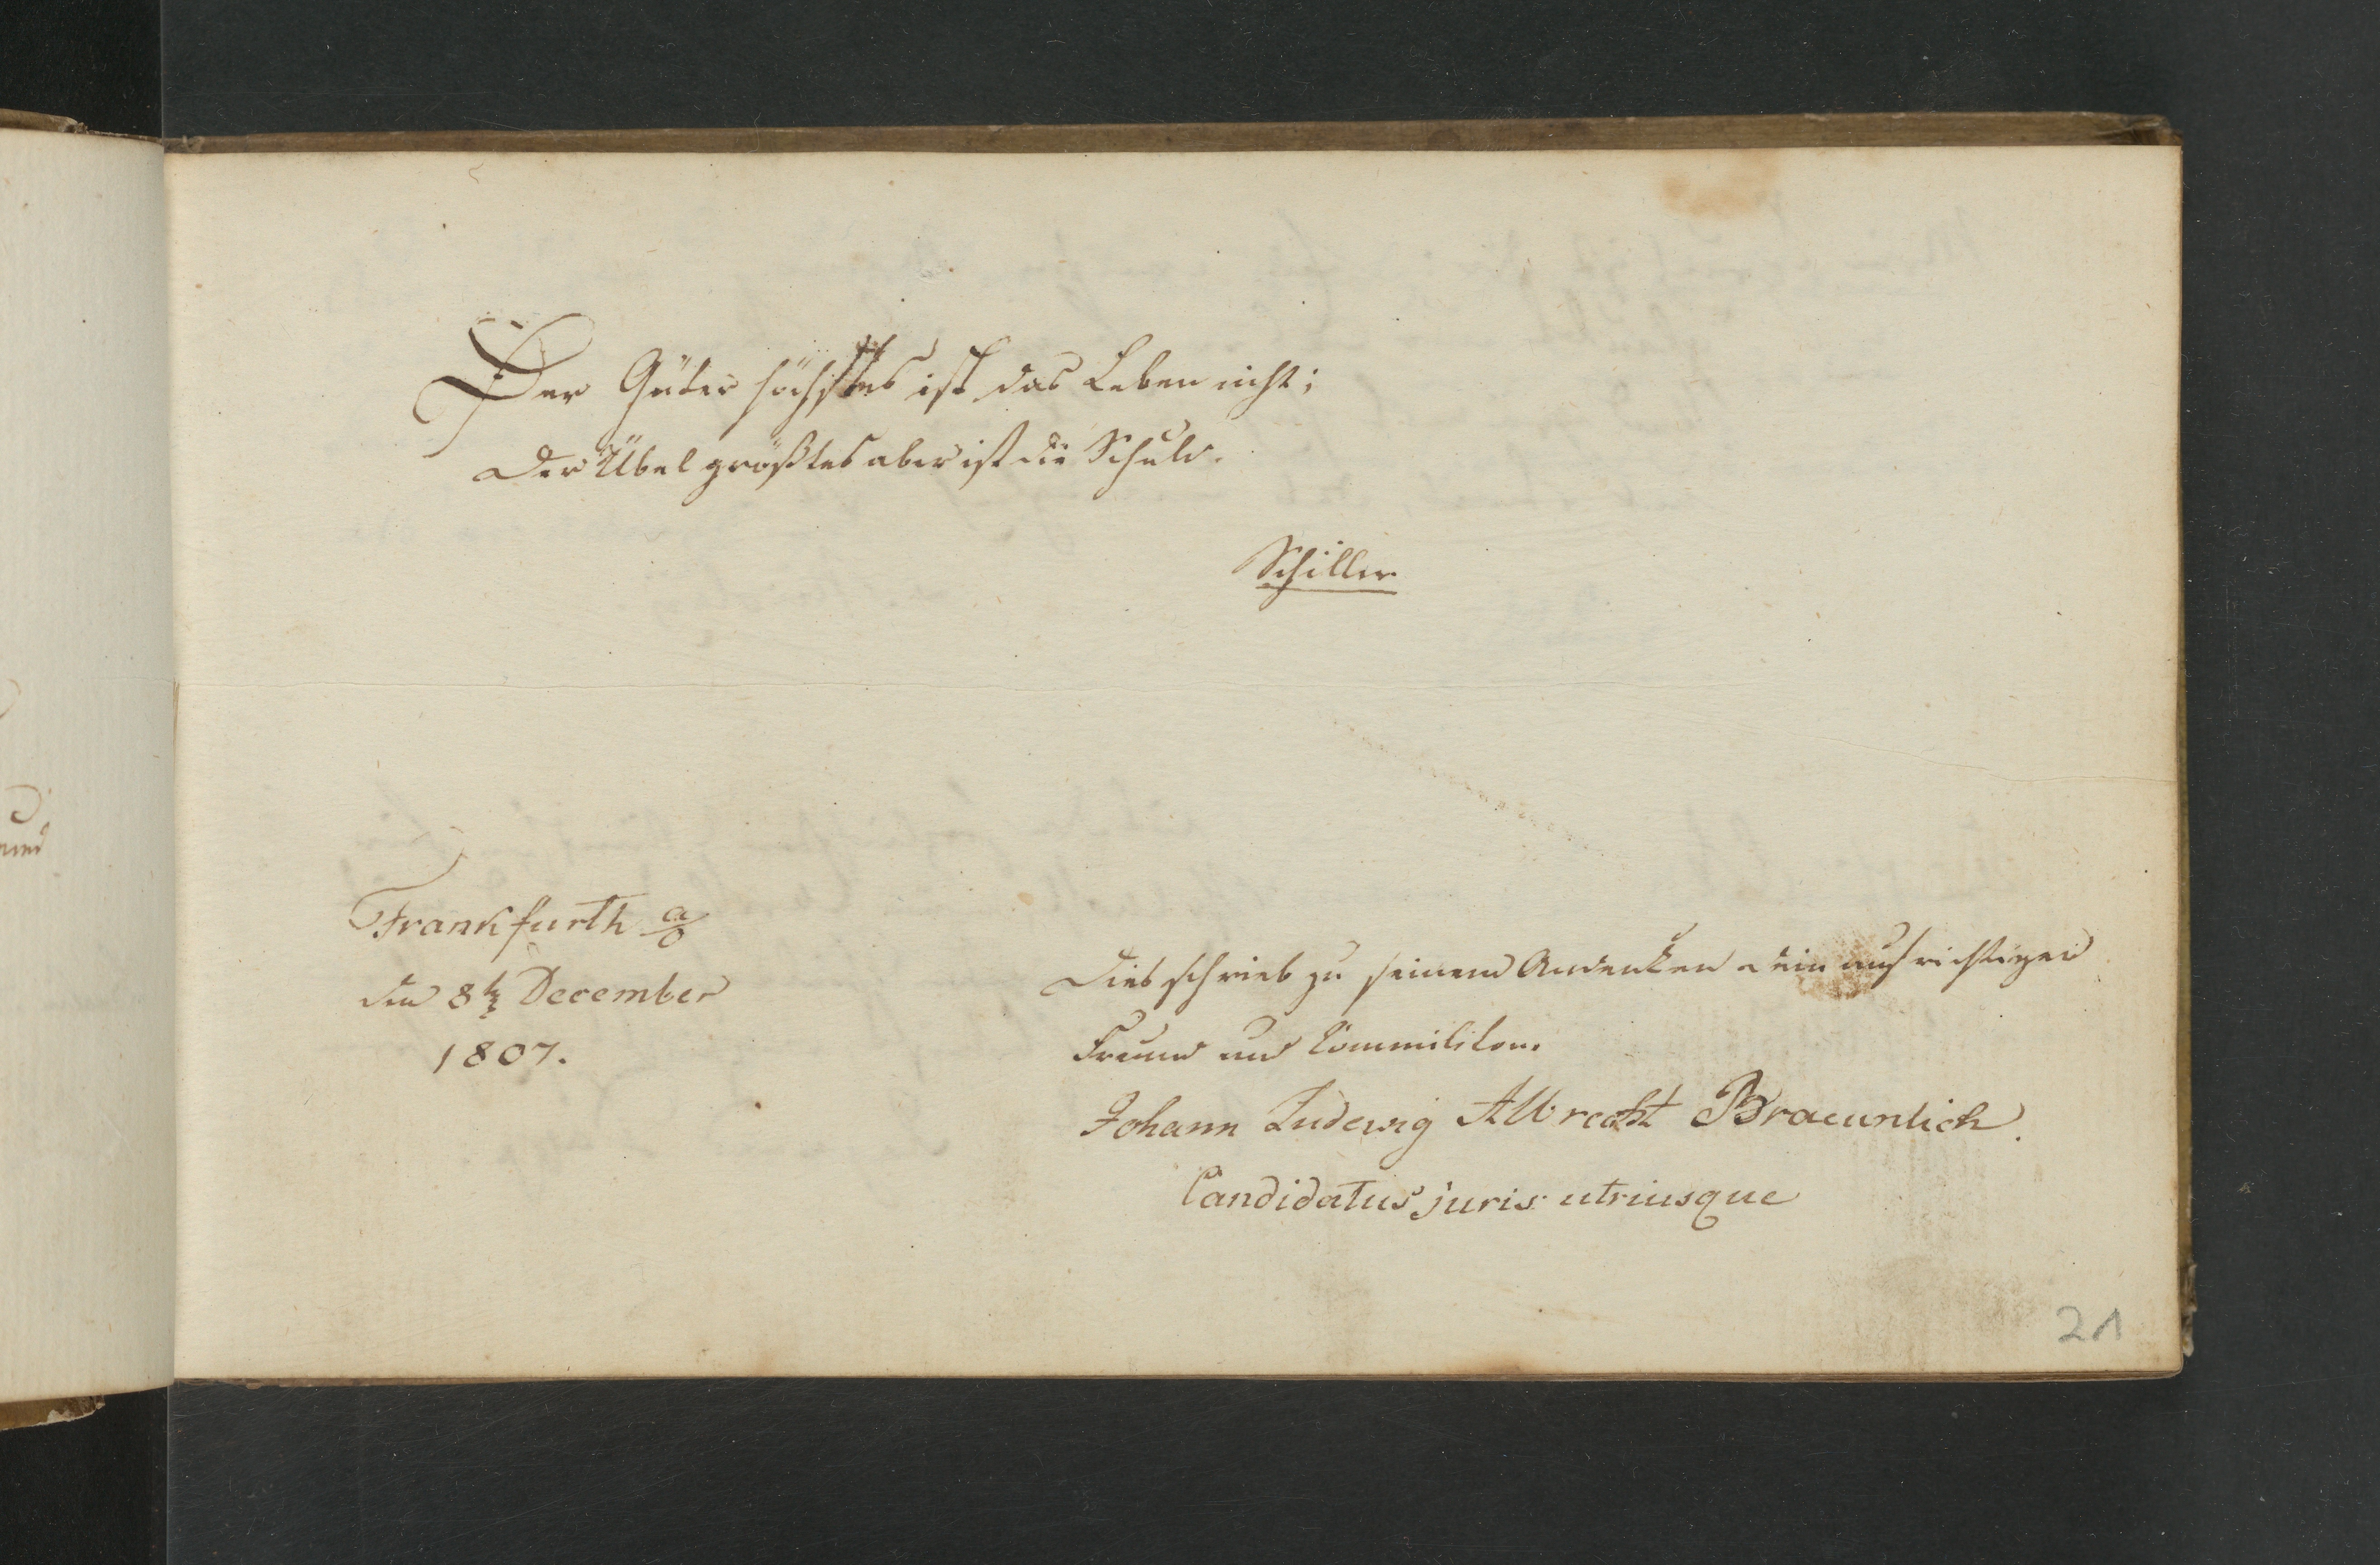 Der Güter höchstes ist das Leben nicht;
der Übel größtes aber ist die Schuld.
Schiller
Frankfurth a/O
den 8t December
1807.
Dies schrieb zu seinem Andenken dein aufrichtiger
Freund und Commiliton.
Johann Ludewig Albrecht Braeunlich.
Candidatus juris utriusque
21